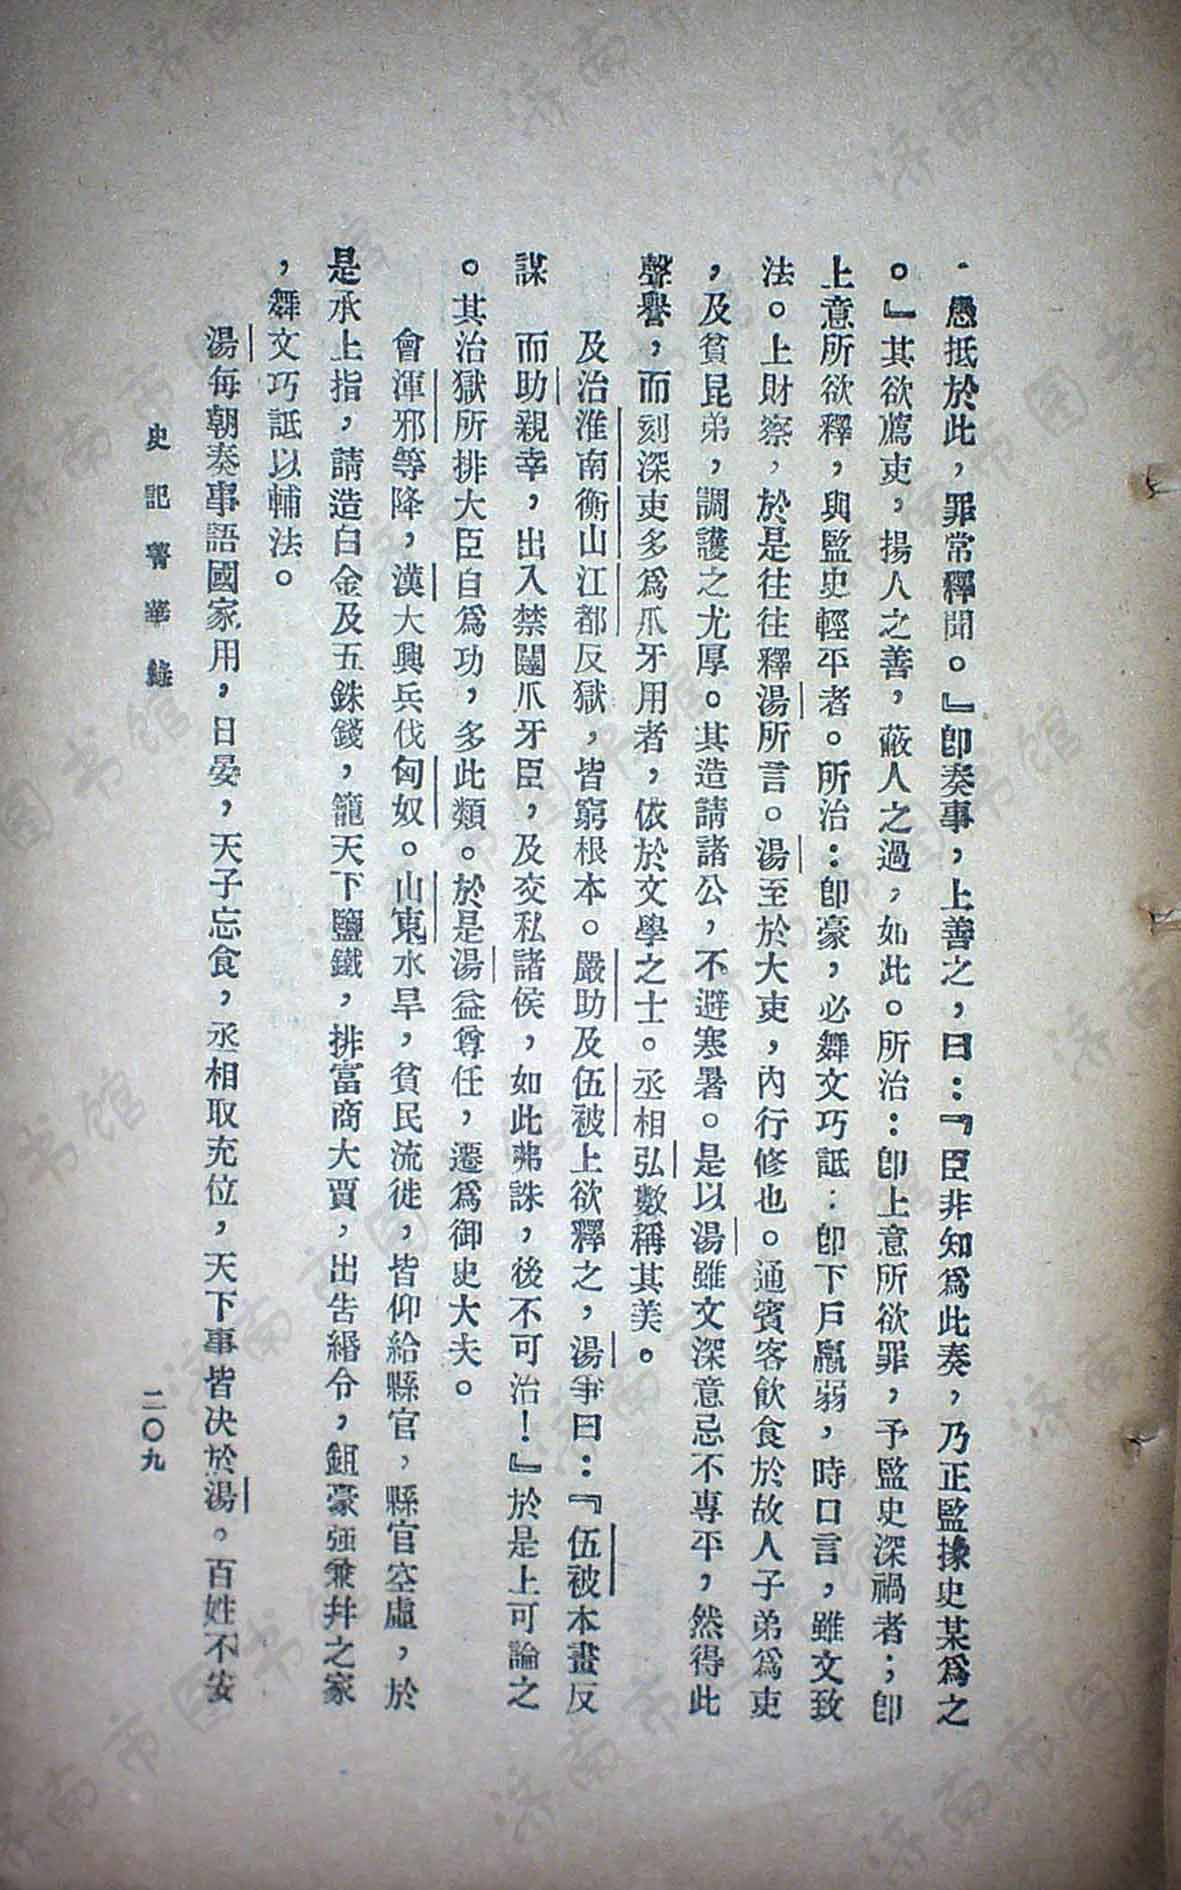 ·愚抵於此，罪常釋聞。』卽奏事，上善之，曰：『臣非知爲此奏，乃正監掾史某爲之
。』其欲薦吏，揚人之善，蔽人之過，如此。所治：卽上意所欲罪，予監史深禍者；卽
上意所欲釋，與監史輕平者。所治：卽豪，必舞文巧詆：卽下戶羸弱，時口言，雖文致
法。上財察，於是往往釋湯所言。湯至於大吏，內行修也。通賓客飲食於故人子弟爲吏
，及貧昆弟，調護之尤厚。其造請諸公，不避寒暑。是以湯雖文深意忌不專平，然得此
聲譽，而刻深吏多爲爪牙用者，依於文學之士。丞相弘數稱其美。
及治淮南衡山江都反獄，皆窮根本。嚴助及伍被上欲釋之，湯爭曰：『伍被本畫反
謀　而助親幸，出入禁闥爪牙臣，及交私諸侯，如此弗誅，後不可治！』於是上可論之
。其治獄所排大臣自爲功，多此類。於是湯益尊任，遷爲御史大夫。
會渾邪等降，漢大興兵伐匈奴。山東水旱，貧民流徙，皆仰給縣官，縣官空虛，於
是承上指，請造白金及五銖錢，籠天下鹽鐵，排富商大賈，出告緡令，鉏豪强兼幷之家
，舞文巧詆以輔法。
湯每朝奏事語國家用，日晏，天子忘食，丞相取充位，天下事皆決於湯。百姓不安
史記菁華錄
二〇九
济南市图书馆